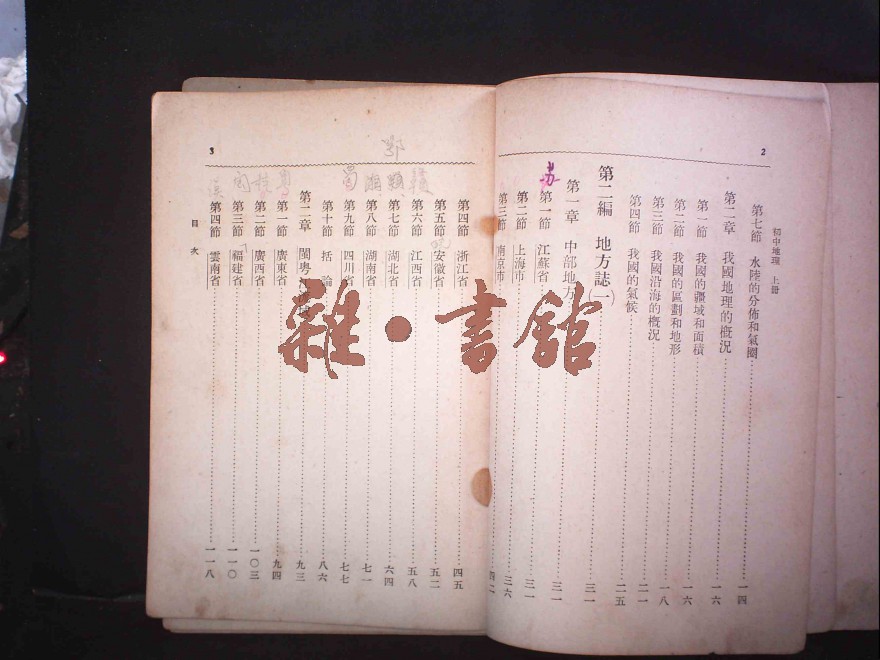 2
初中地理　上冊
第七節　水陸的分佈和氣圈　一四
第二章　我國地理的概況　一六
第一節　我國的疆域和面積　一六
第二節　我國的區劃和地形　一八
第三節　我國沿海的概況　二一
第四節　我國的氣候　二五
第二編　地方誌(一)　三一
第一章　中部地方　三一
第一節　江蘇省　三一
第二節　上海市　三六
第三節　南京市　四二
3
第四節　浙江省　四五
第五節　安徽省　五二
第六節　江西省　五八
第七節　湖北省　六四
第八節　湖南省　七一
第九節　四川省　七七
第十節　括論　八六
第二章　閩粵　九三
第一節　廣東省　九四
第二節　廣西省　一〇三
第三節　福建省　一一〇
第四節　雲南省　一一八
目次
苏
蜀
雜•書館